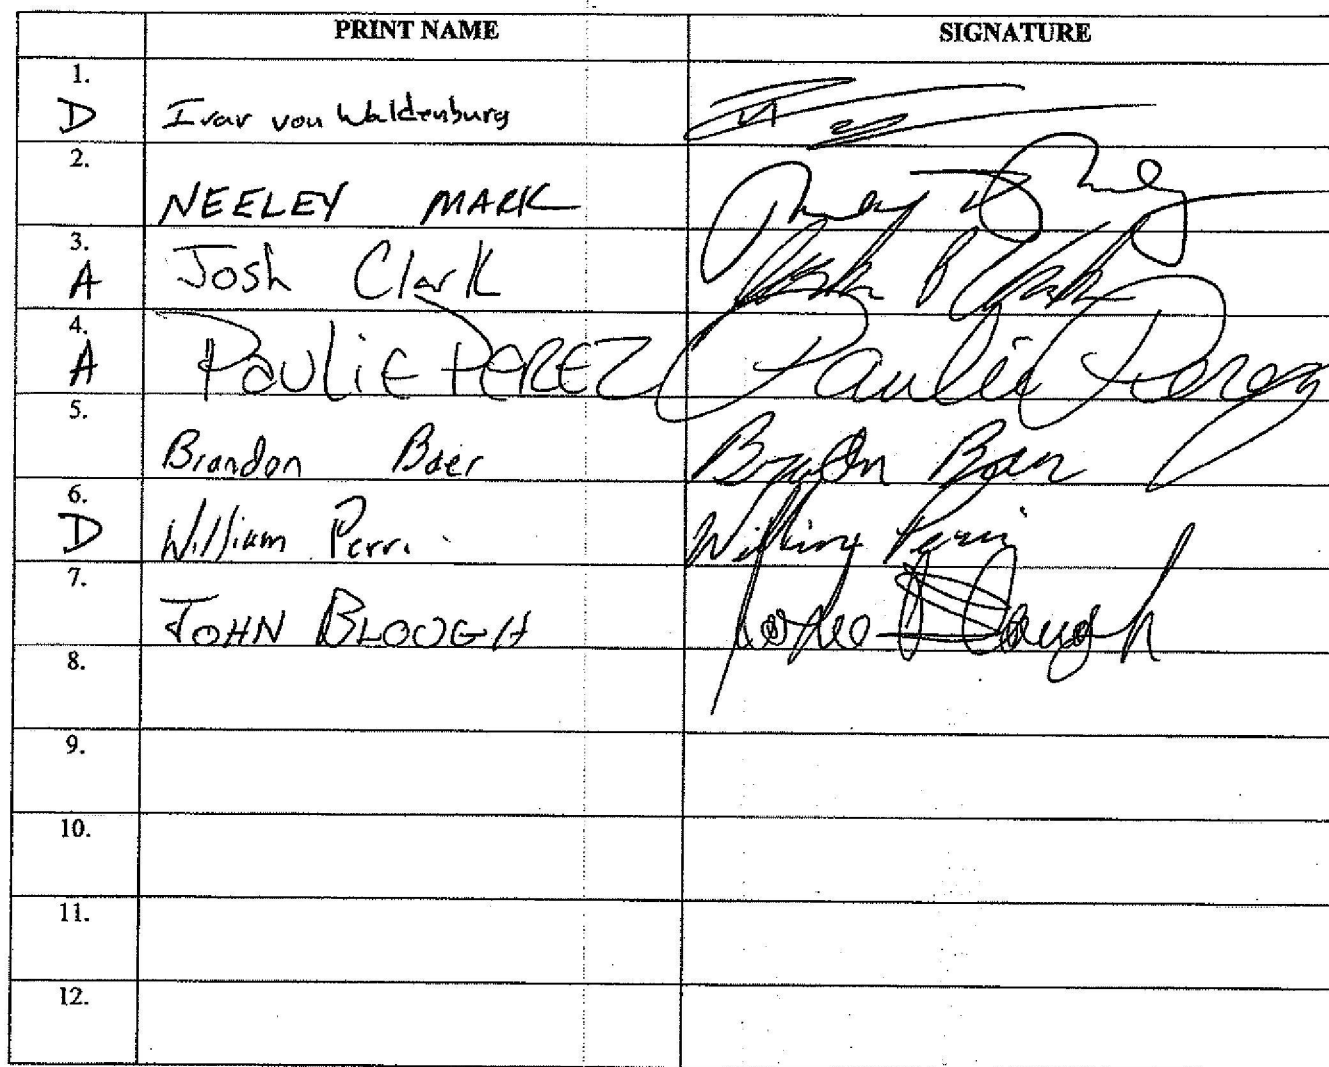 PRINT NAME SIGNATURE
1.
D Ivar von Waldenburg
2.
NEELEY MARK
3.
A Josh Clark
4.
A PAULiE PEREZ Paulie Perez
5.
Brandon Baer Brandon Baer
6.
D William Perri William Perri
7.
JOHN BLOUGH
8.
9.
10.
11.
12.